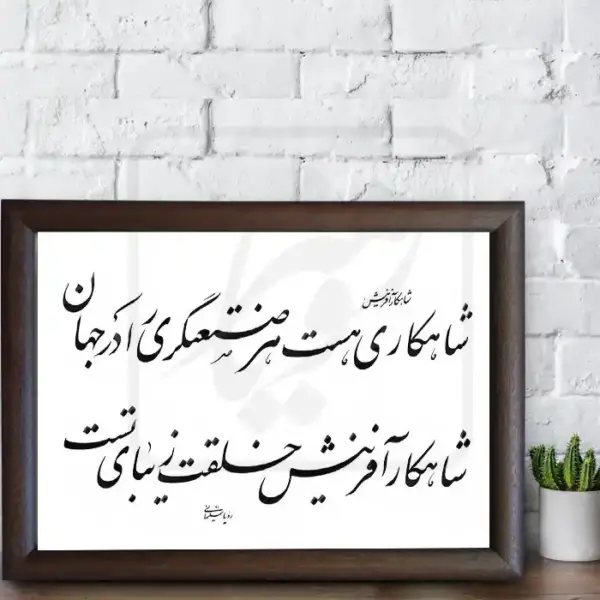 شاهکار آفرینش
شاهکاری هست هر صنعتگری را در جهان
شاهکار آفرینش خلقت زیبای تست